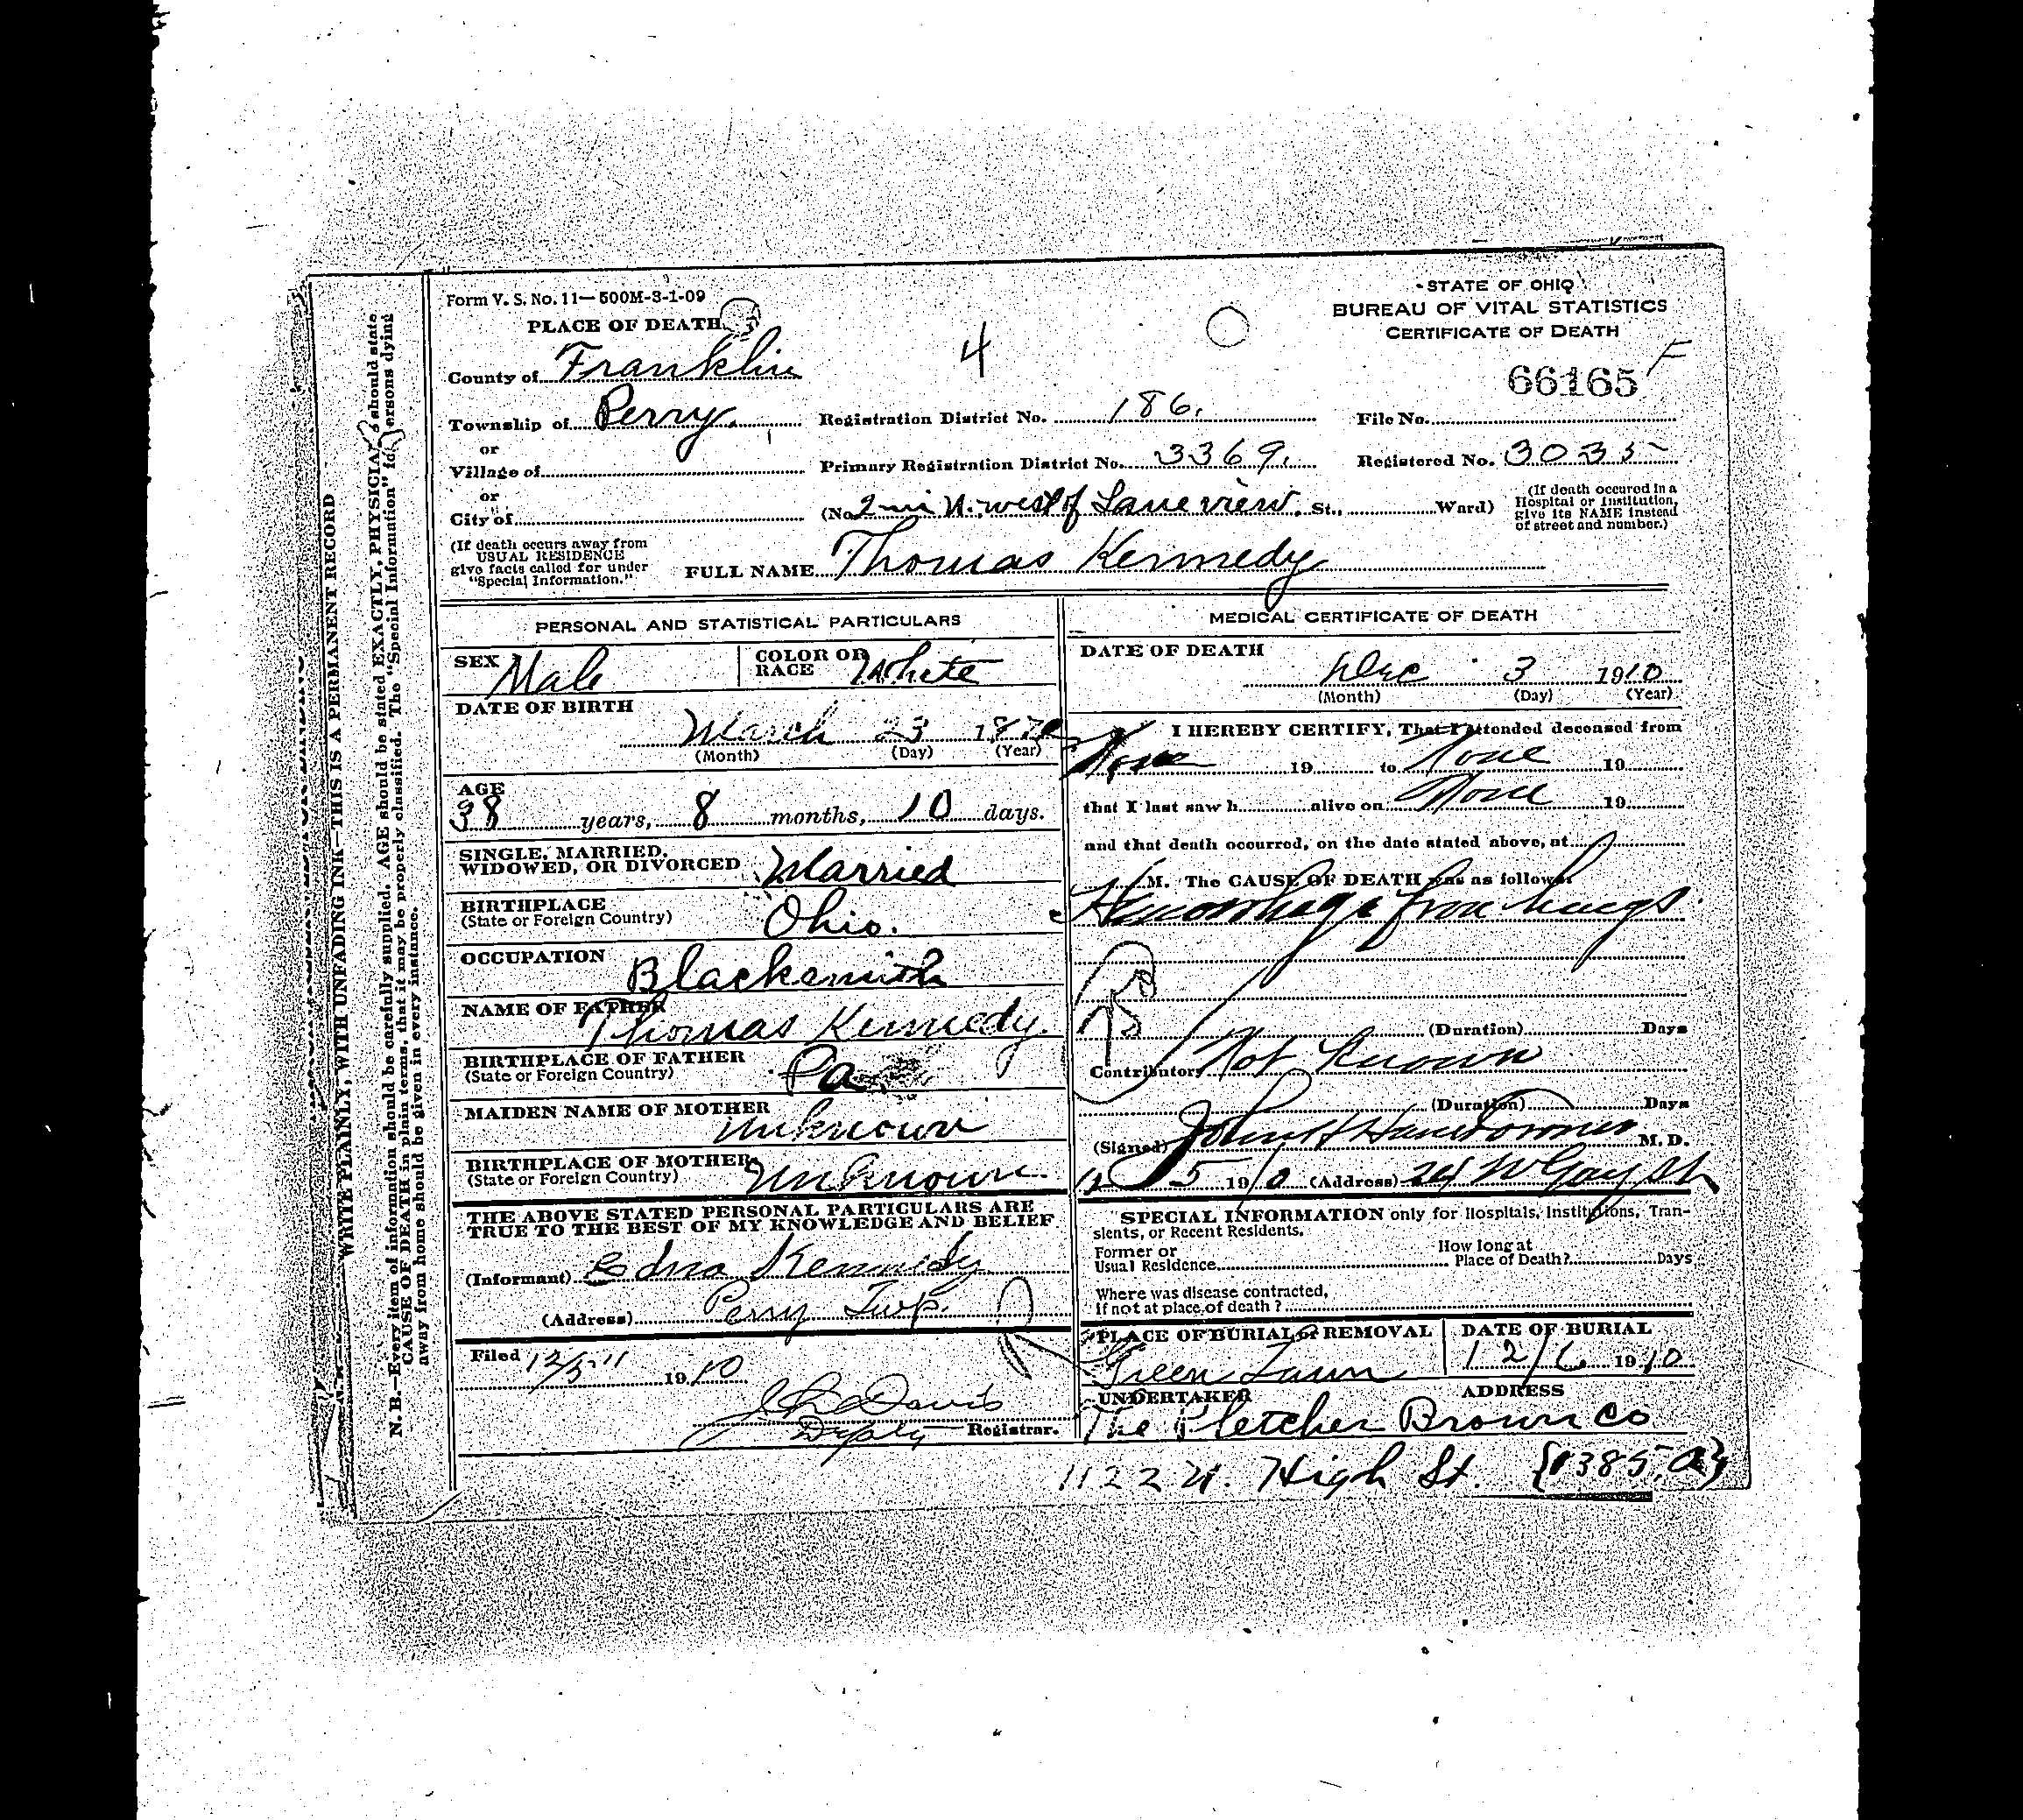 Form V. S. No. 11—500M-3-1-09
PLACE OF DEATH
STATE OF OHIO
BUREAU OF VITAL STATISTICS
CERTIFICATE OF DEATH
4
County of Franklin
66165 F
Township of Perry. Registration District No. 186. File No.
or
Village of Primary Registration District No. 3369. Registered No. 3035
or
City of (No. 2 mi N. west of Lane view. St., Ward) (If death occured in a Hospital or Institution, give its NAME instead of street and number.)
(If death occurs away from
USUAL RESIDENCE
give facts called for under
"Special Information."
FULL NAME Thomas Kennedy
PERSONAL AND STATISTICAL PARTICULARS
SEX Male COLOR OR RACE White
DATE OF BIRTH
March 23
(Month) (Day) (Year)
AGE
38 years, 8 months, 10 days.
SINGLE, MARRIED,
WIDOWED, OR DIVORCED Married
BIRTHPLACE
(State or Foreign Country) Ohio.
OCCUPATION Blacksmith
NAME OF FATHER Thomas Kennedy.
BIRTHPLACE OF FATHER
(State or Foreign Country) Pa
MAIDEN NAME OF MOTHER unknown
BIRTHPLACE OF MOTHER
(State or Foreign Country) Unknown.
THE ABOVE STATED PERSONAL PARTICULARS ARE
TRUE TO THE BEST OF MY KNOWLEDGE AND BELIEF
(Informant) Edna Kennedy
(Address) Perry Twp.
Filed 12/5" 1910
Davis
Deputy Registrar.
MEDICAL CERTIFICATE OF DEATH
DATE OF DEATH
Dec 3 1910
(Month) (Day) (Year)
I HEREBY CERTIFY, That I attended deceased from
None 19 to None 19
that I last saw h alive on None 19
and that death occurred, on the date stated above, at
M. The CAUSE OF DEATH was as follows:
Hemorrhage from lungs.
(Duration) Days
Contributory Not Known
(Duration) Days
(Signed) John M. D.
12 5 1910 (Address) W Gay St
SPECIAL INFORMATION only for Hospitals, Institutions, Tran-
sients, or Recent Residents.
Former or
Usual Residence
How long at
Place of Death? Days
Where was disease contracted,
If not at place of death?
PLACE OF BURIAL or REMOVAL DATE OF BURIAL
Green Lawn 12/6 1910
UNDERTAKER ADDRESS
The Fletcher Brown Co
1122 N. High St.
WRITE PLAINLY, WITH UNFADING INK—THIS IS A PERMANENT RECORD
N. B.—Every item of information should be carefully supplied. AGE should be stated EXACTLY. should state
CAUSE OF DEATH in plain terms, that it may be properly classified. The "Special Information" dying
away from home should be given in every instance.